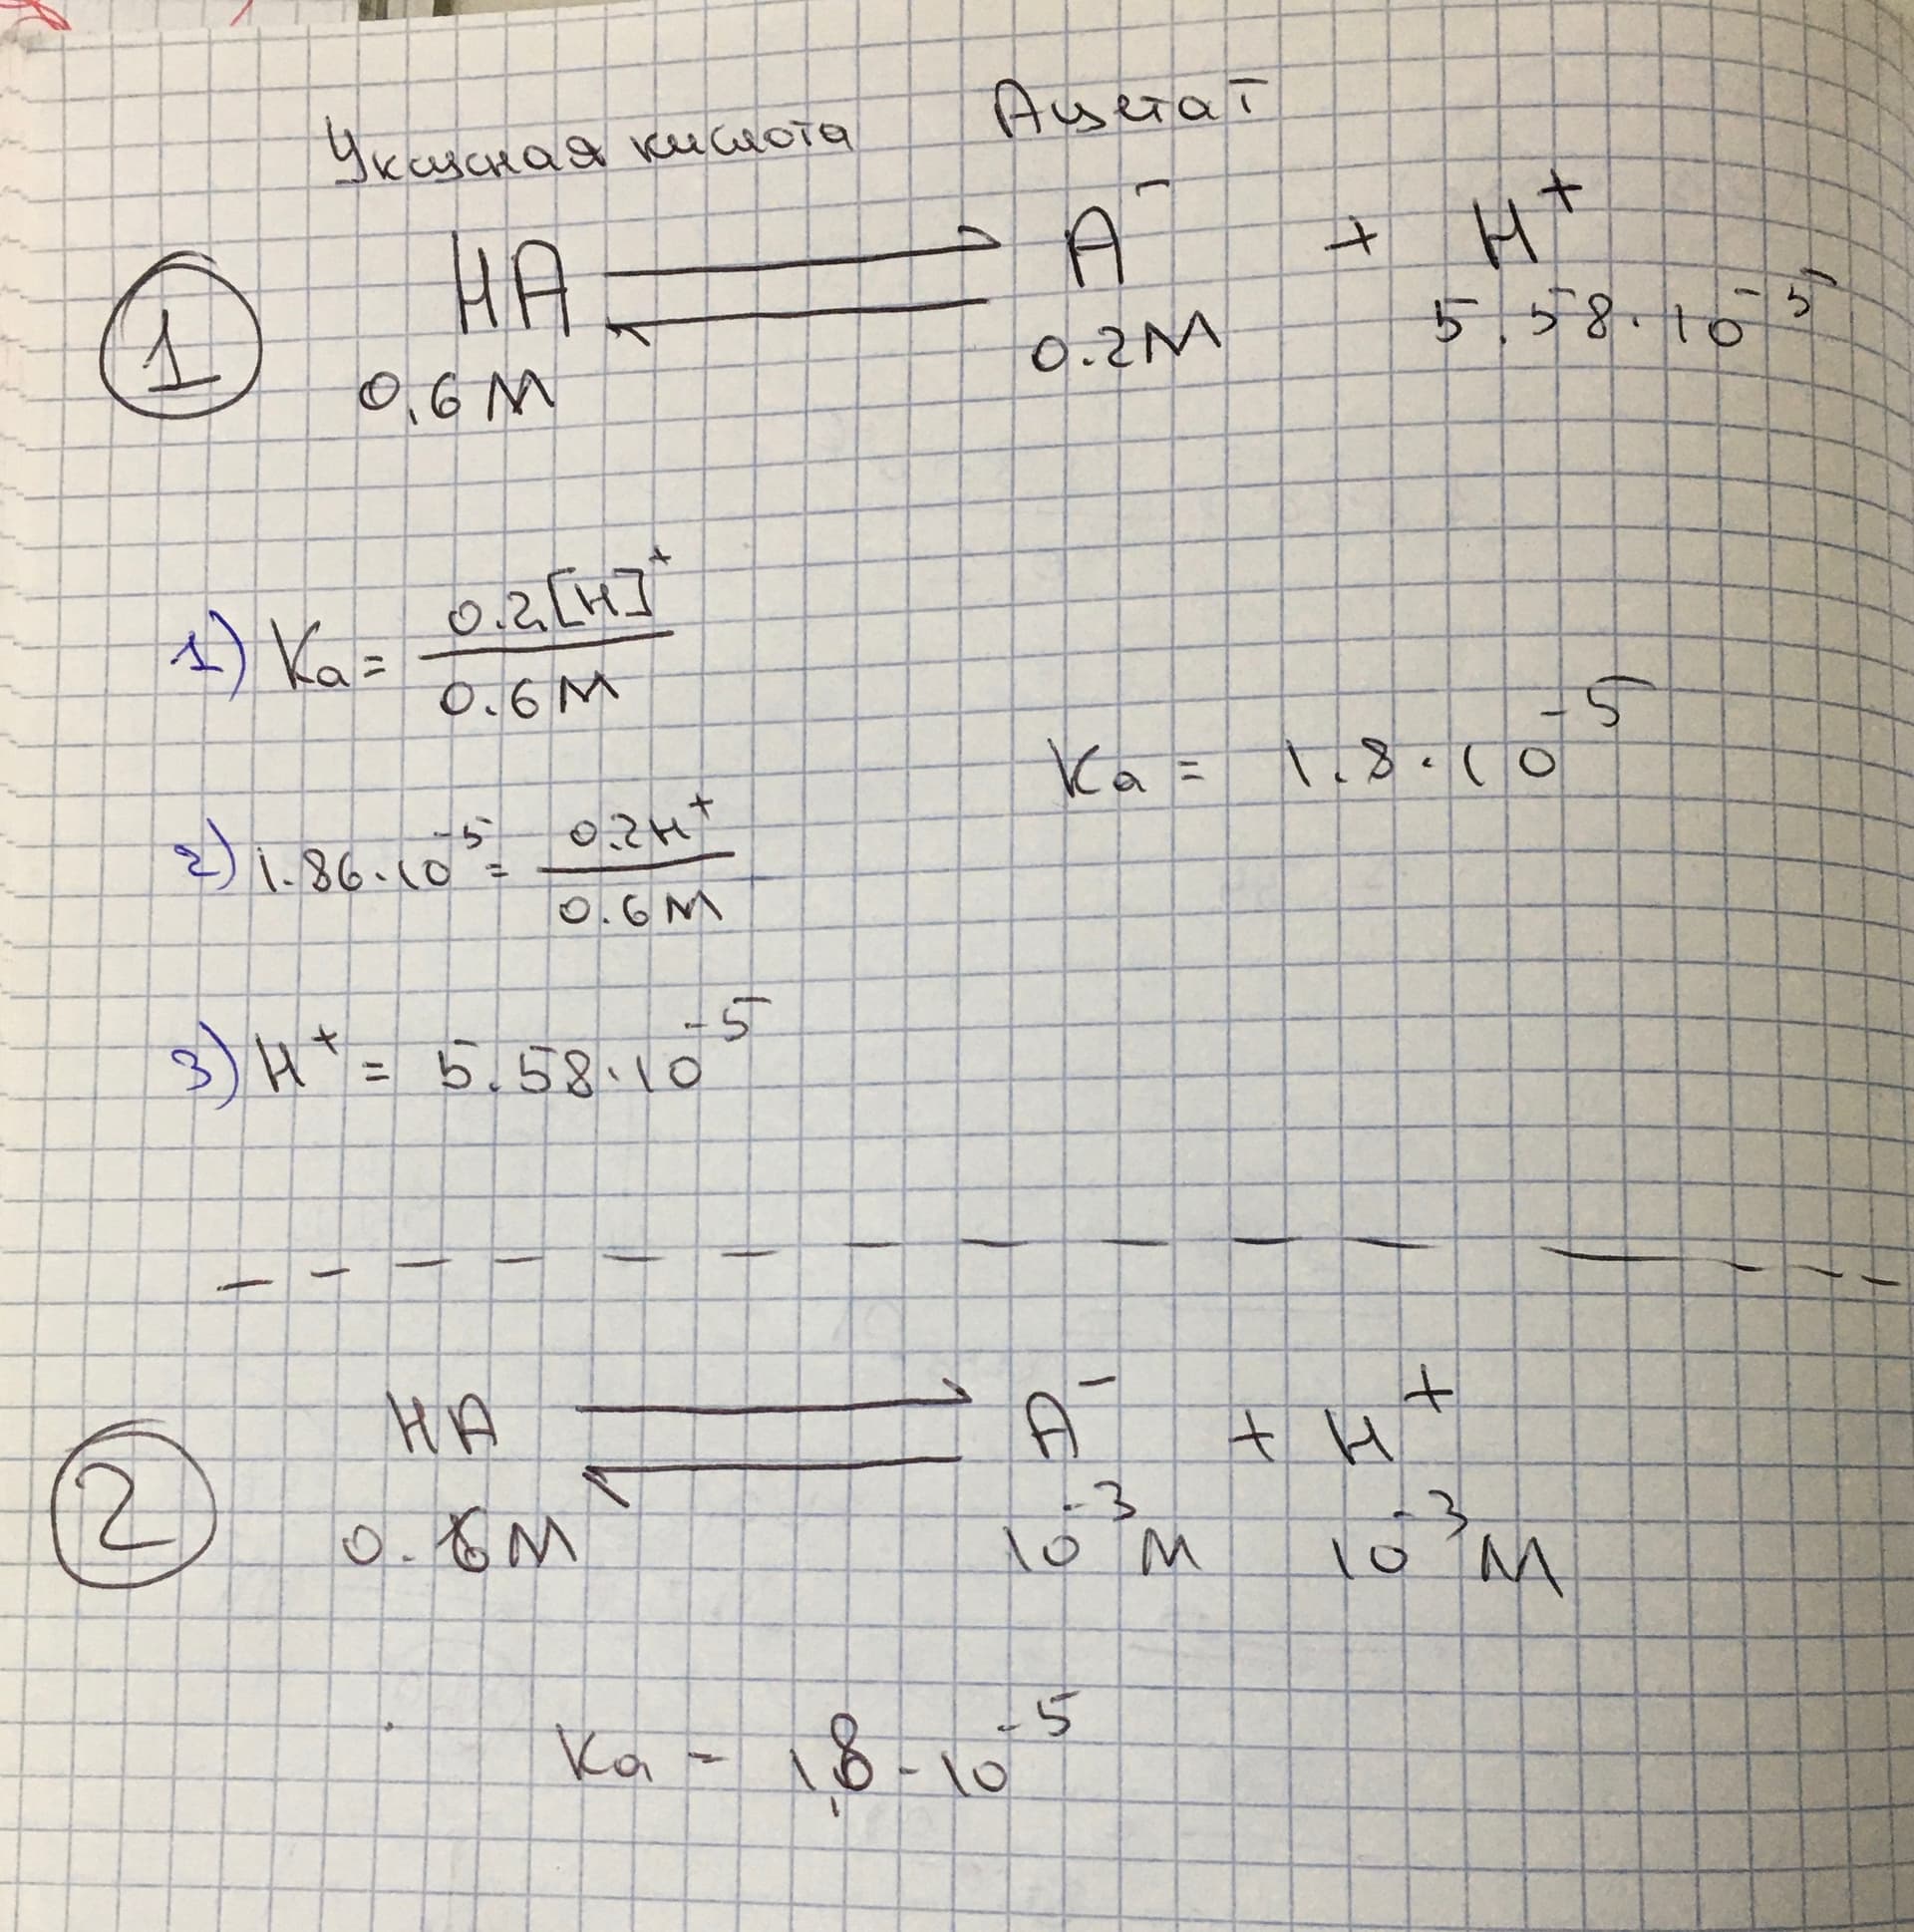 Уксусная кислота Ацетат
1 HA ⇌ A⁻ + H⁺
0,6 M 0.2M 5.58·10⁻⁵
1) Ka = 0.2[H]⁺ / 0.6 M
Ka = 1.8·10⁻⁵
2) 1.86·10⁻⁵ = 0.2H⁺ / 0.6M
3) H⁺ = 5.58·10⁻⁵
2 HA ⇌ A⁻ + H⁺
0.6M 10⁻³M 10⁻³M
Ka = 1,8·10⁻⁵